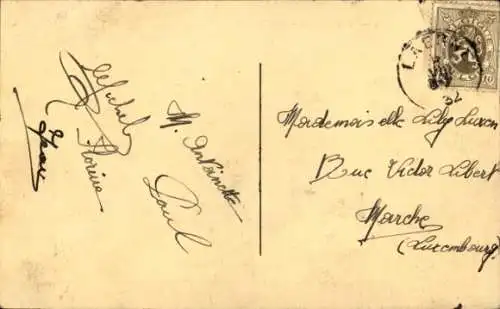 Michel
Jean
Florine
M. Antoinette
Paul
Mademoiselle Lily Luxen
Rue Victor Libert
Marche
(Luxembourg)
32
10